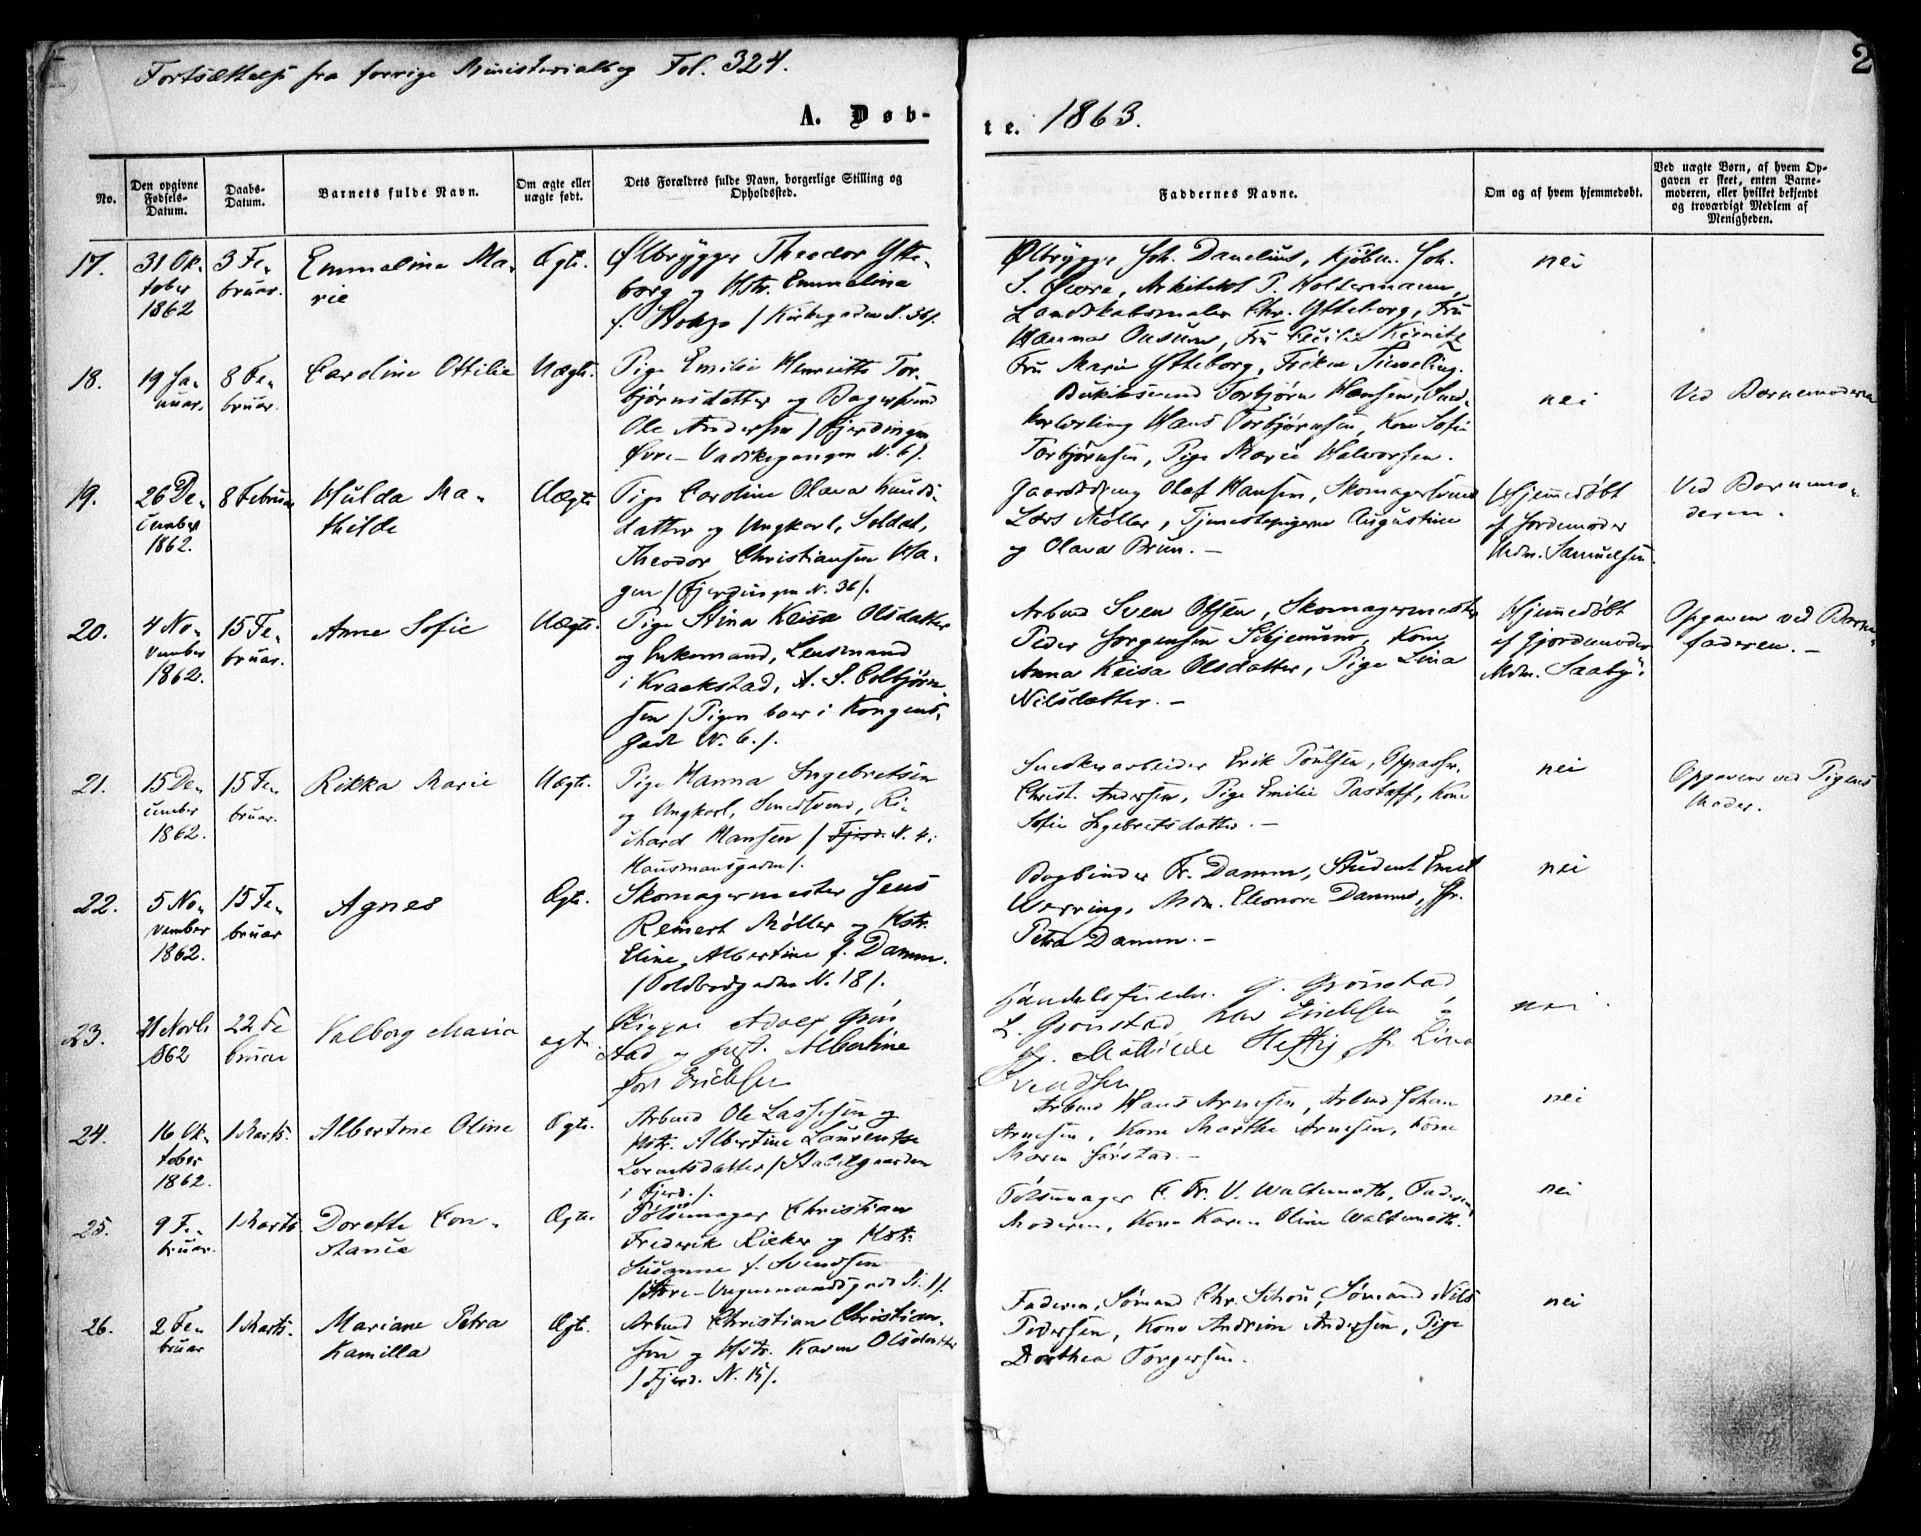 Fortsættelse fra forrige Ministerialbog Fol. 324.
2
A. Døb-
te. 1863.
No.
Den opgivne Fødsels-Datum.
Daabs-Datum.
Barnets fulde Navn.
Om ægte eller uægte født.
Dets Forældres fulde Navn, borgerlige Stilling og Opholdssted.
Faddernes Navne.
Om og af hvem hjemmedøbt.
Ved uægte Børn, af hvem Op-
gaven er skeet, enten Barne-
moderen, eller hvilket bekjendt
og troværdigt Medlem af
Menigheden.
17.
31 Ok-
tober
1862
3 Fe-
bruar.
Emmeline Ma-
rie
Ægte.
Ølbrygger Theodor Ytte-
borg og Hstr. Emmelina
f. / Kirkegaden N. 36/.
Ølbrygger Joh. Danelius, Kjøbm. Joh.
S. Øvre, Arkitekt P. Holtermann,
Landskabsmaler Chr. Ytteborg, Fru
Hanna Fru Cecilie
Fru Marie Ytteborg, Frøken
nei
18.
19 Ja-
nuar.
8 Fe-
bruar.
Caroline Ottilie
Uægte.
Pige Emilie Henriette Tor-
bjørnsdatter og Bagersvend
Ole Andersen / Fjerdingen
Øvre-Vadskegangen N. 6/.
Torbjørn Hansen, Snd-
kerlærling Hans Torbjørnsen, Kone Sofie
Torbjørnsen, Pige Marie Halvorsen.
nei
Ved Barnemoderen
19.
26 De-
cember
1862.
8 Februar
Hulda Ma-
thilde
Uægte
Pige Caroline Olava Knuds-
datter og Ungkarl, Soldat,
Theodor Christiansen Ha-
gen / Fjerdingen N. 36/.
Gaardsdreng Olaf Hansen, Skomagersvend
Lars Møller, Tjenestepigerne Augustine
og Olava Brun. -
Hjemmedøbt
af Jordemoder
Mdm. Samuelsen.
Ved Barnemo-
deren.
20.
4 No-
vember
1862.
15 Fe-
bruar.
Anne Sofie
Uægte.
Pige Stina Keisa Olsdatter
og Enkemand, Lensmand
i Kraakstad, A. S. Colbjørn-
sen / Pigen boer i Kongens-
Gade N. 6./.
Arbmd Sven Olsen, Skomagermester
Peder Jørgensen Kone
Anna Keisa Olsdatter, Pige Lina
Nilsdatter. -
Hjemmedøbt
af Gjordemoder
Mdm. Saaby.
Opgaven ved Barne-
faderen. -
21.
15 De-
cember
1862.
15 Fe-
bruar.
Rikka Marie
Uægte.
Pige Hanna Ingebretsen
og Ungkarl, Smedsvend, Ri-
chard Hansen / Fjerd. N. 4:
Hausmansgaden/.
Snedkerarbeider Erik Poulsen,
Christ. Andersen, Pige Emilie Kone
Sofie Ingebretsdatter. -
nei
Opgaven ved Pigens
Moder.
22.
5 No-
vember
1862.
15 Fe-
bruar
Agnes
Ægte.
Skomagermester Jens
Reinert Møller og Hstr.
Eline Albertine f. Damm.
/ Toldbodgaden N. 18/.
Bogbinder Fr. Damm, Student Emil
Werring, Mdm. Eleonore Damm, Jfr.
Petra Damm. -
nei
23.
21 Novb.
1862
22 Fe
bruar
Valborg Maria
ægte.
Adolf Grøn
stad og Albertine
født Erichsen
G. Grønstad
L. Grønstad, Erichsen
Jfr. Mathilde Heftig Jfr. Lina
Svendsen
nei.
24.
16 Ok-
tober
1862.
1 Marts.
Albertine Oline
Ægte.
Arbmd Ole Lassesen og
Hstr. Albertine Laurentze
Lorentsdatter /
i Fjerd./.
Arbmd Hans Arnesen, Arbmd Johan
Arnesen, Kone Marthe Arnesen, Kone
Maren -
nei
25.
9 Fe-
bruar.
1 Marts
Dorette Con-
stance
Ægte.
Pølsemager Christian
Frederik Ricker og Hstr.
Susanne f. Svendsen
Pølsemager C. Fr. V. Waltemath, Faderen,
Moderen, Kone Karen Oline Waltemath.
nei
26.
2 Fe-
bruar
1 Marts.
Mariane Petra
Kamilla
Ægte.
Arbmd Christian Christian-
sen og Hstr. Karen Olsdatter
/ Fjerd. N. 15/.
Faderen, Sømand Chr. Schou, Sømand Nils
Pedersen, Kone Andersen, Pige
Dorthea Torgersen.
nei